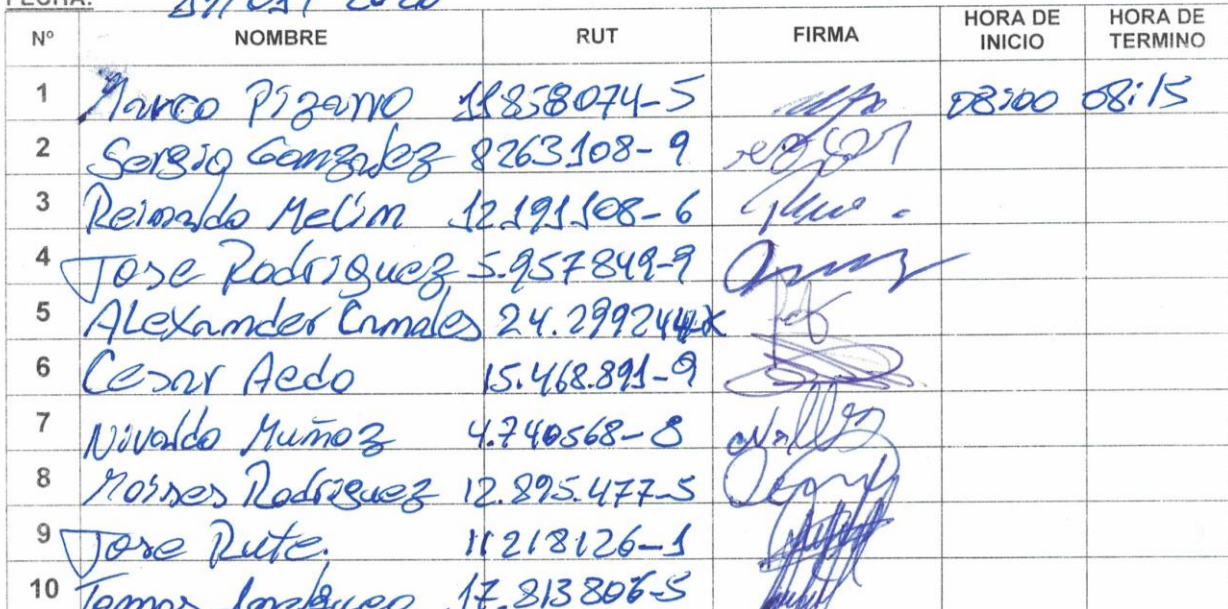 FECHA: 2020
Nº NOMBRE RUT FIRMA HORA DE INICIO HORA DE TERMINO
1 Marco Pizarro 11858074-5 08:00 08:15
2 Sergio Gonzalez 8263108-9
3 Reinaldo Melin 12.191108-6
4 Jose Rodriguez 5.957849-9
5 Alexander Canales 24.299244-X
6 Cesar Aedo 15.468.891-9
7 Nivaldo Muñoz 4.740568-8
8 Moises Rodriguez 12.895.477-5
9 Jose Rute. 11218126-1
10 17.813806-5